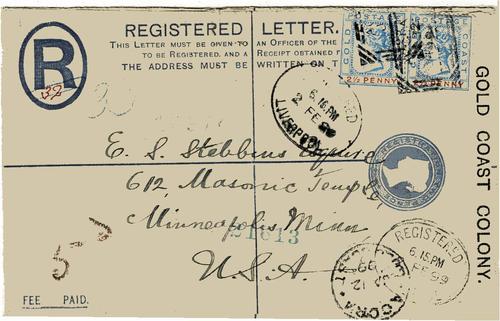 REGISTERED LETTER.
THIS LETTER MUST BE GIVEN TO AN OFFICER OF THE
TO BE REGISTERED, AND A RECEIPT OBTAINED
THE ADDRESS MUST BE WRITTEN ON
R
GOLD COAST
POSTAGE
2½ PENNY
COAST
PENNY
REGISTERED
6.15 PM
2 FE 99
LIVERPOOL
GOLD COAST COLONY.
E. S. Stebbins Esquire
612 Masonic Temple,
Minneapolis, Minn
U.S.A.
REGISTERED
6.15 PM
FE 99
ACCRA
12
99
FEE PAID.